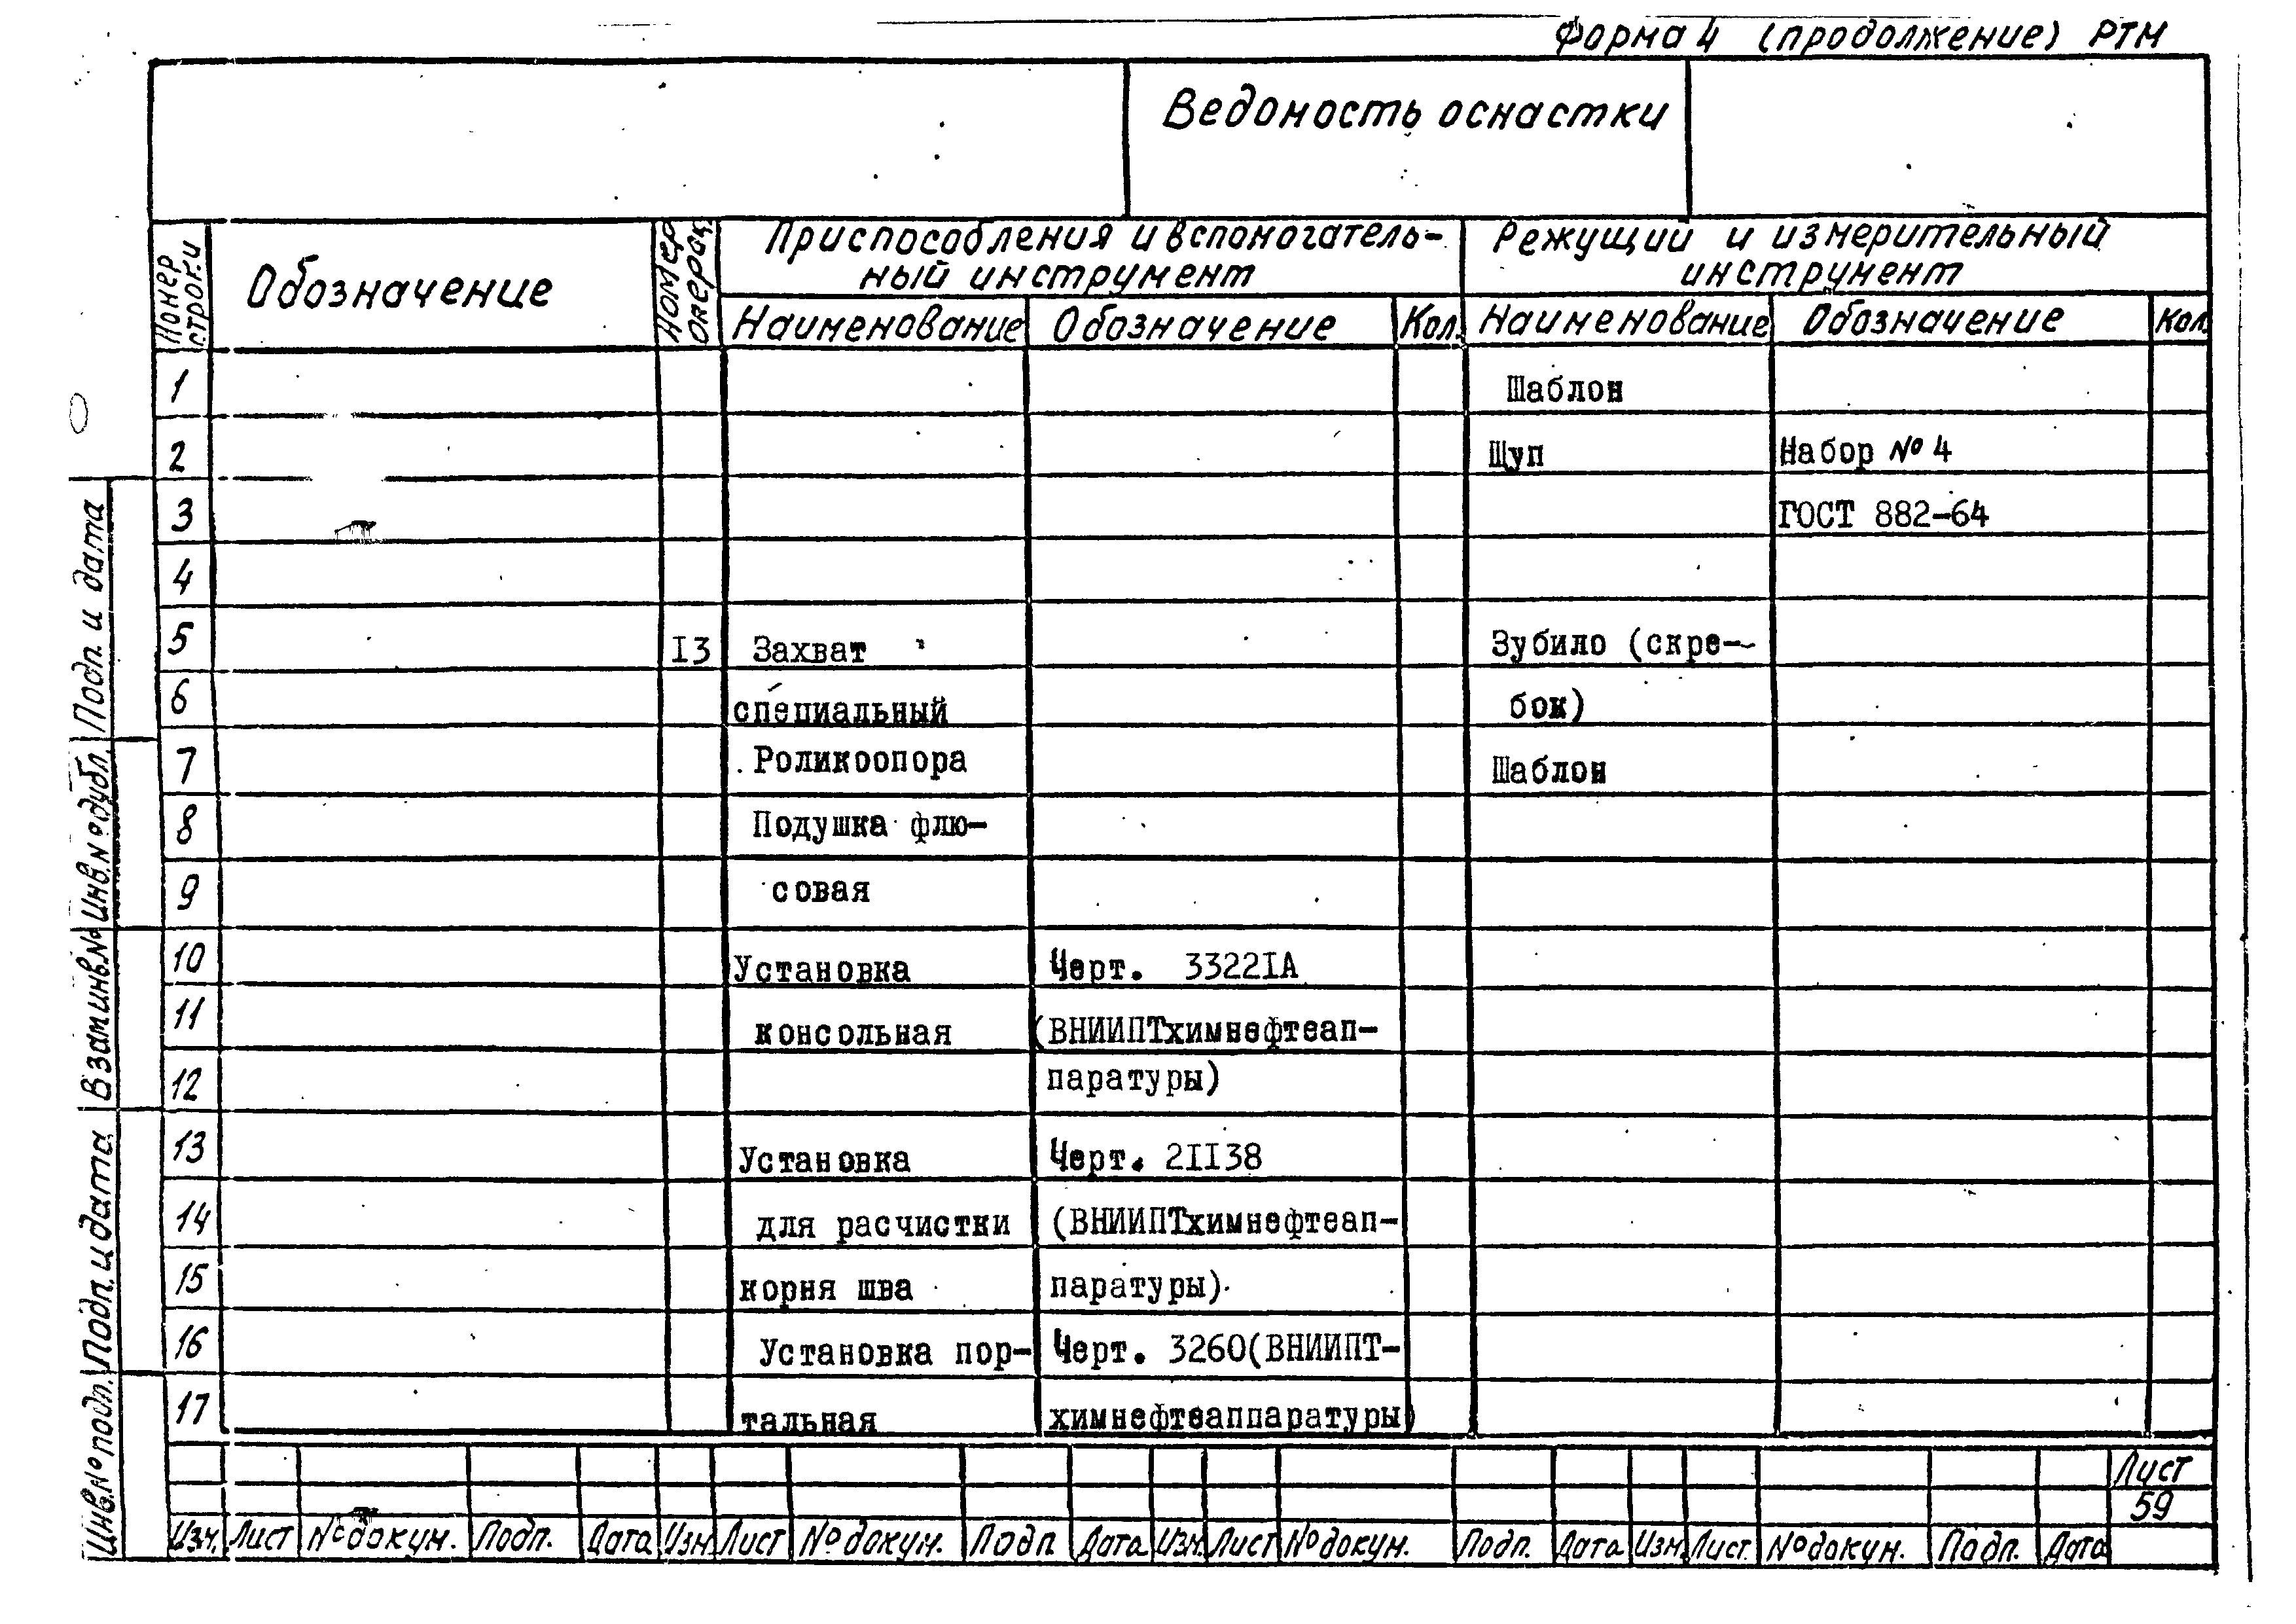 Форма 4 (продолжение) РТМ
Ведомость оснастки
Номер строки
Обозначение
Номер операц.
Приспособления и вспомогатель-
ный инструмент
Режущий и измерительный
инструмент
Наименование Обозначение Кол. Наименование Обозначение Кол.
1 Шаблон
2 Щуп Набор № 4
3 ГОСТ 882-64
4
5 I3 Захват Зубило (скре-
6 специальный бок)
7 Роликоопора Шаблон
8 Подушка флю-
9 совая
10 Установка Черт. 3322IА
11 консольная (ВНИИПТхимнефтеап-
12 паратуры)
13 Установка Черт. 2II38
14 для расчистки (ВНИИПТхимнефтеап-
15 корня шва паратуры)
16 Установка пор- Черт. 3260(ВНИИПТ-
17 тальная химнефтеаппаратуры)
Подп. и дата
Инв. № дубл.
Взам инв. №
Подп. и дата
Инв. № подп.
Лист
59
Изм. Лист № докум. Подп. Дата Изм Лист № докум. Подп Дата Изм. Лист № докум. Подп. Дата Изм. Лист. № докум. Подп. Дата